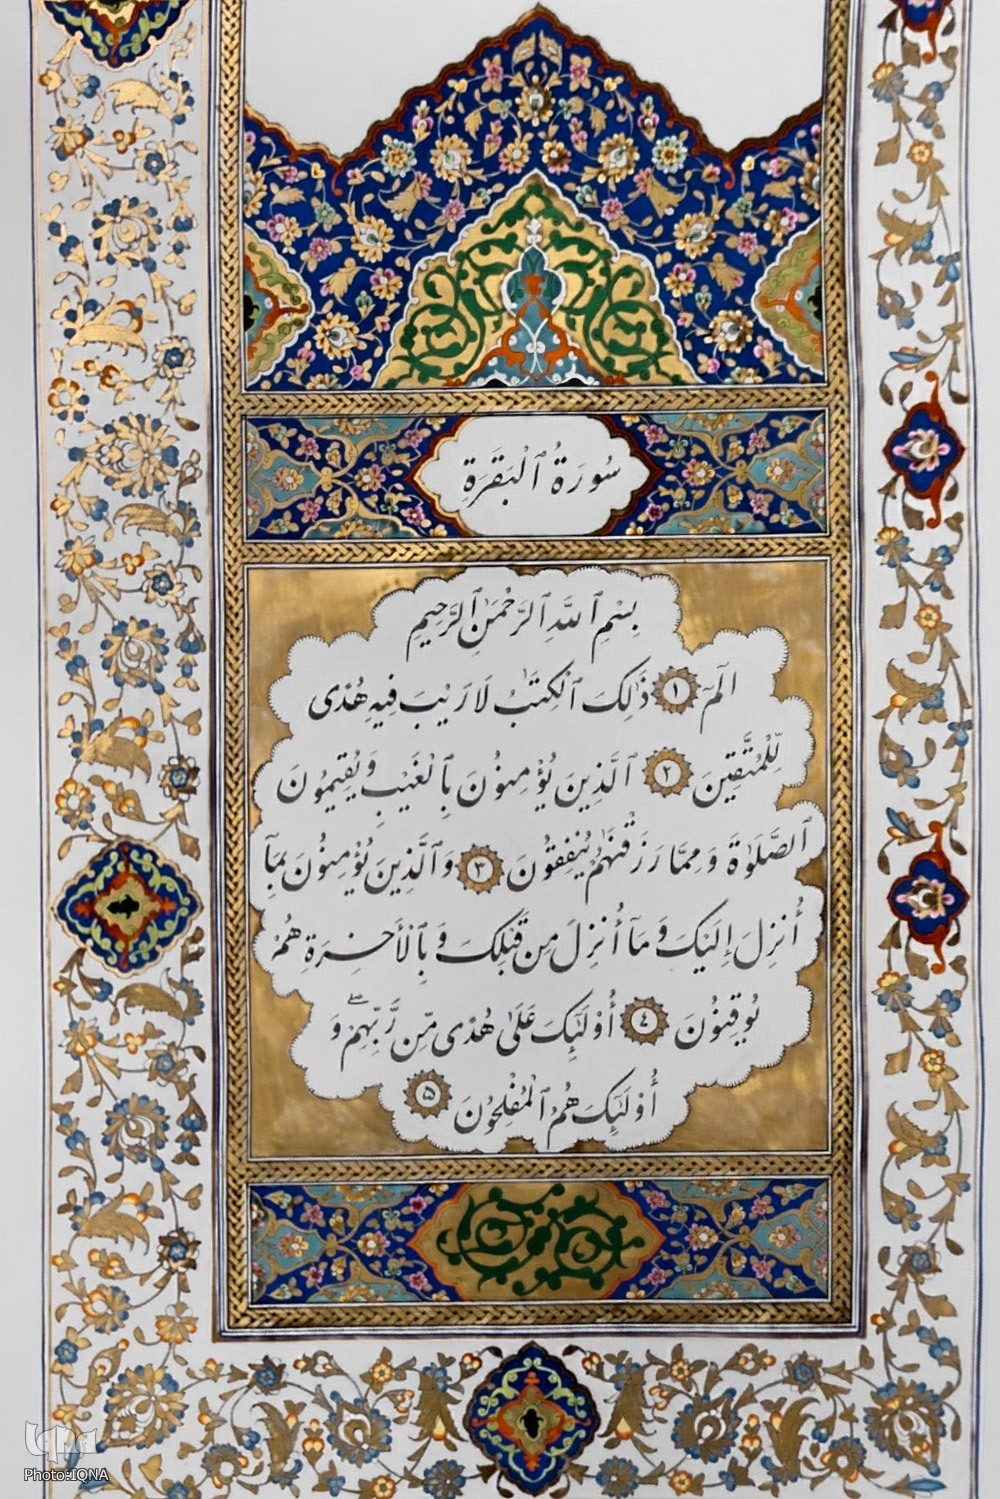 سُورَةُ ٱلْبَقَرَةِ
بِسْمِ ٱللَّهِ ٱلرَّحْمَٰنِ ٱلرَّحِيمِ
الٓمٓ ١ ذَٰلِكَ ٱلْكِتَٰبُ لَا رَيْبَ فِيهِ هُدًى
لِّلْمُتَّقِينَ ٢ ٱلَّذِينَ يُؤْمِنُونَ بِٱلْغَيْبِ وَيُقِيمُونَ
ٱلصَّلَوٰةَ وَمِمَّا رَزَقْنَٰهُمْ يُنفِقُونَ ٣ وَٱلَّذِينَ يُؤْمِنُونَ بِمَآ
أُنزِلَ إِلَيْكَ وَمَآ أُنزِلَ مِن قَبْلِكَ وَبِٱلْأَخِرَةِ هُمْ
يُوقِنُونَ ٤ أُوْلَٰٓئِكَ عَلَىٰ هُدًى مِّن رَّبِّهِمْ ۖ وَ
أُوْلَٰٓئِكَ هُمُ ٱلْمُفْلِحُونَ ۵
Iqna
Photo:IQNA